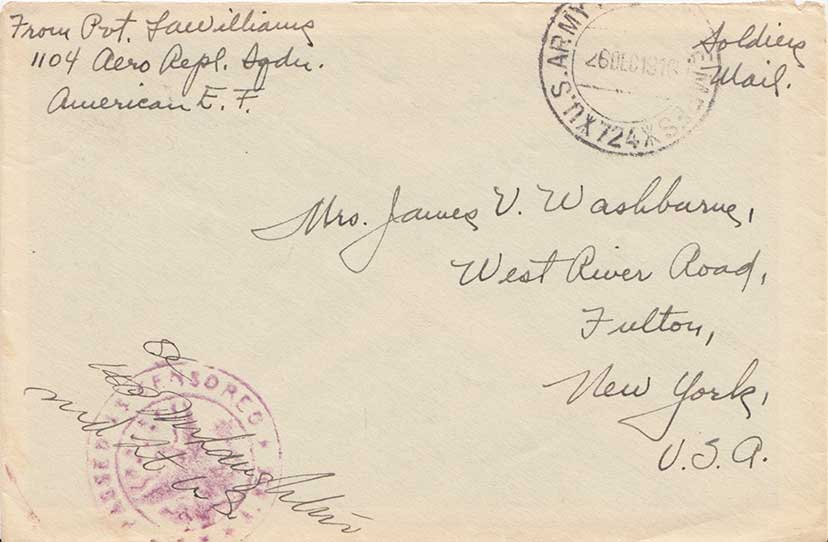 From Pvt. L A Williams
1104 Aero Repl. Sqdn.
American E. F.
Soldiers
Mail.
U.S. ARMY
724
26 DEC 191
Mrs. James V. Washburne,
West River Road,
Fulton,
New York,
U.S.A.
CENSORED